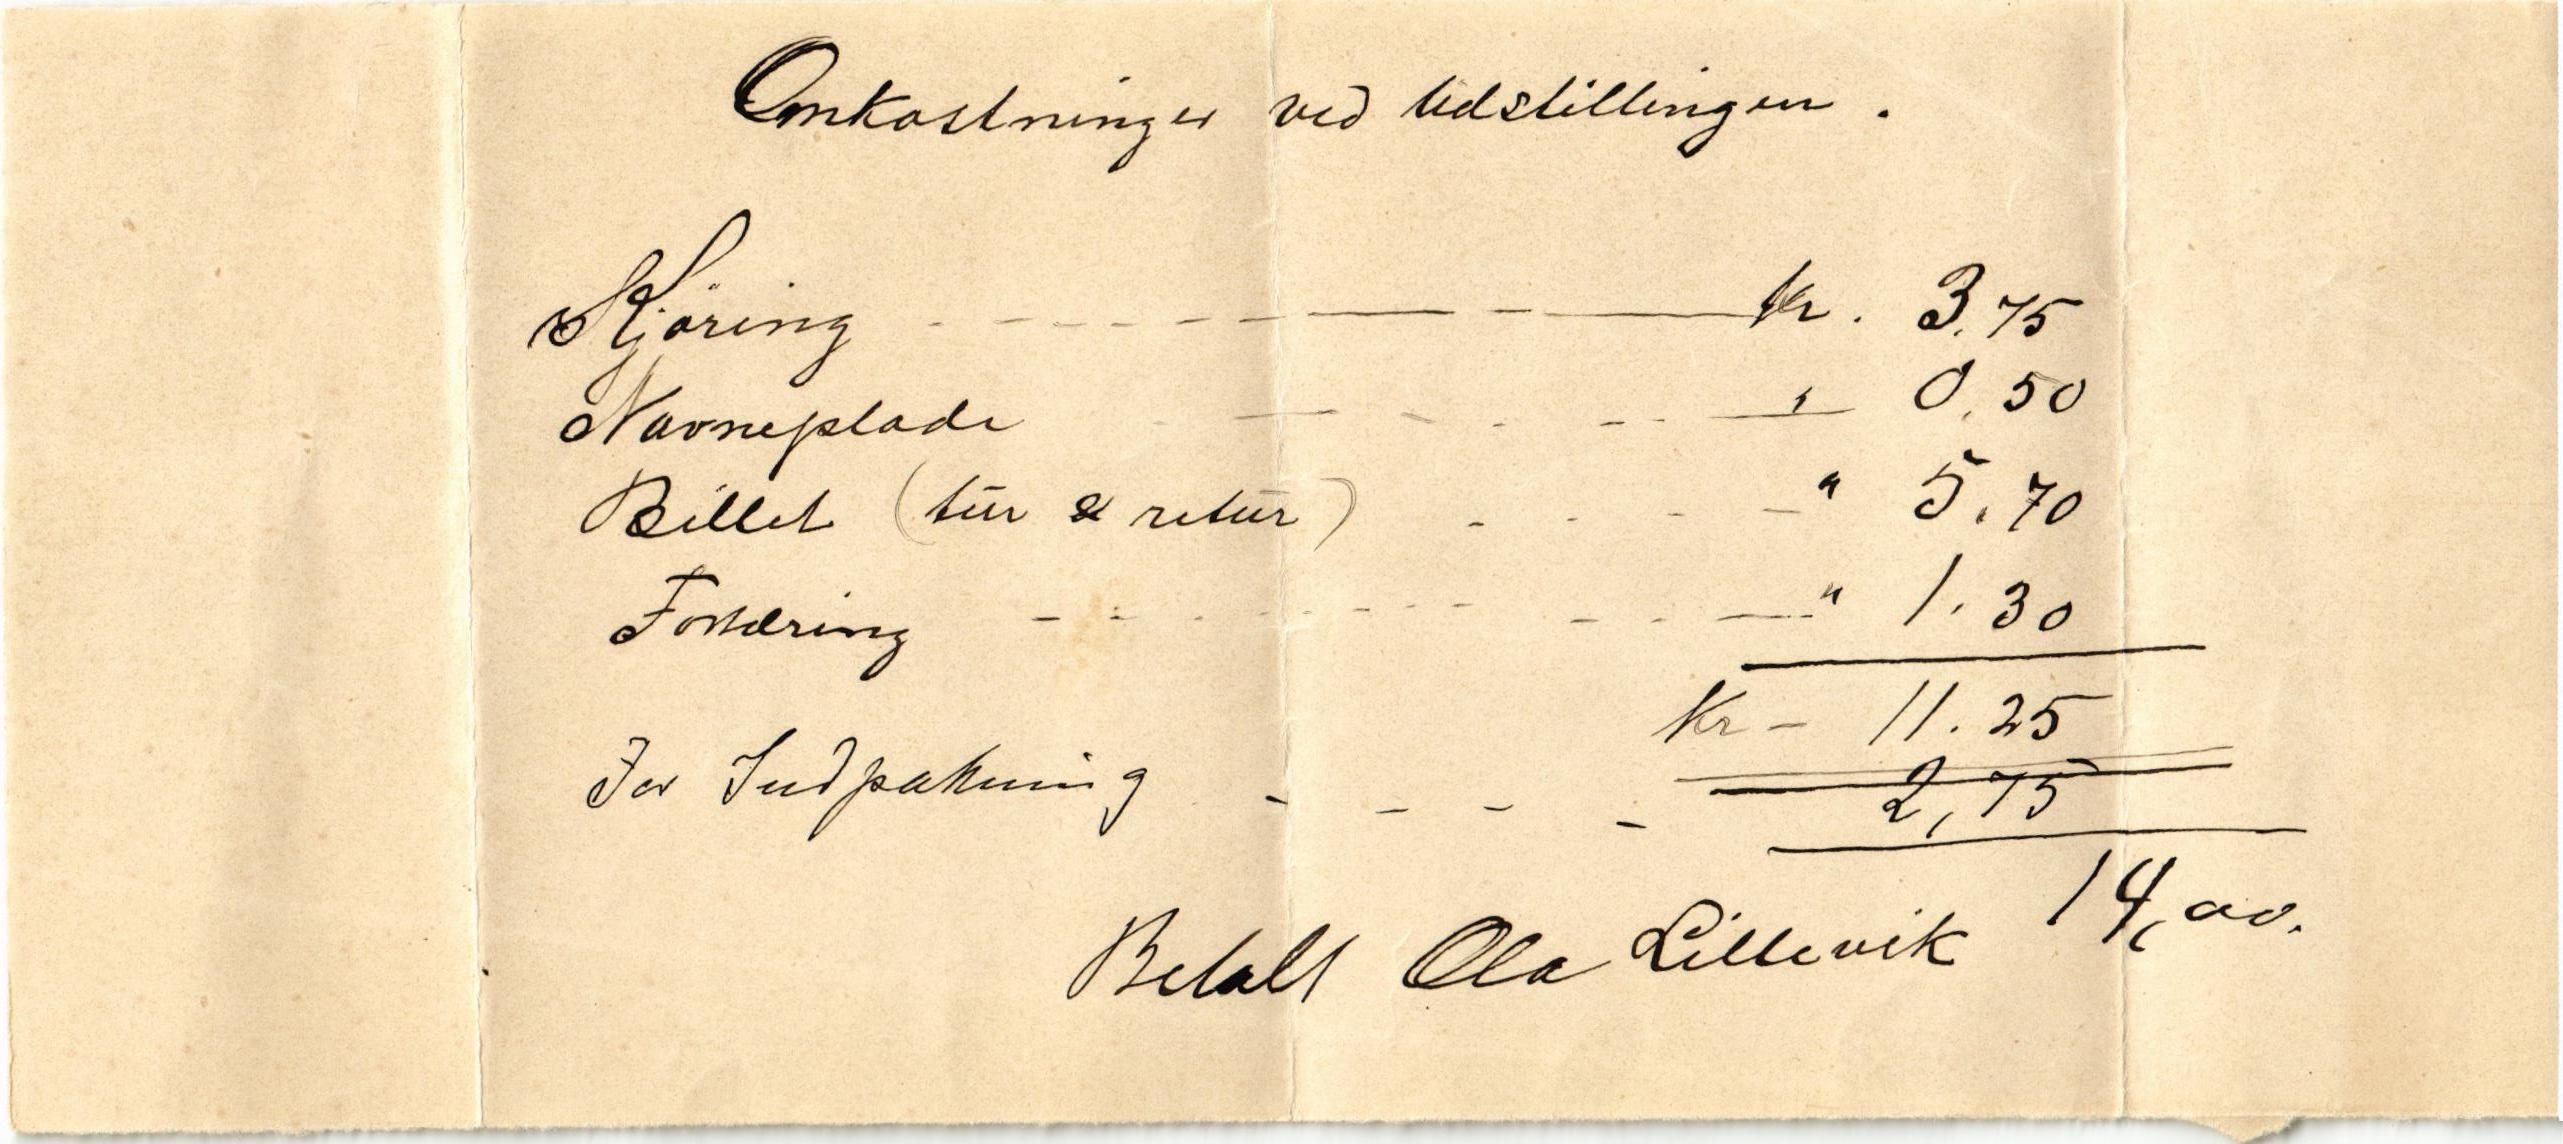 Omkostninger ved Udstillingen.
Kjöring - - - - Kr. 3.75
Navneplade - - - - " 0.50
Billet (tur & retur) - - - - " 5.70
Fortæring - - - - " 1.30
Kr - 11.25
For Indpakning - - - - 2,75
14,00.
Betalt Ola Lillevik